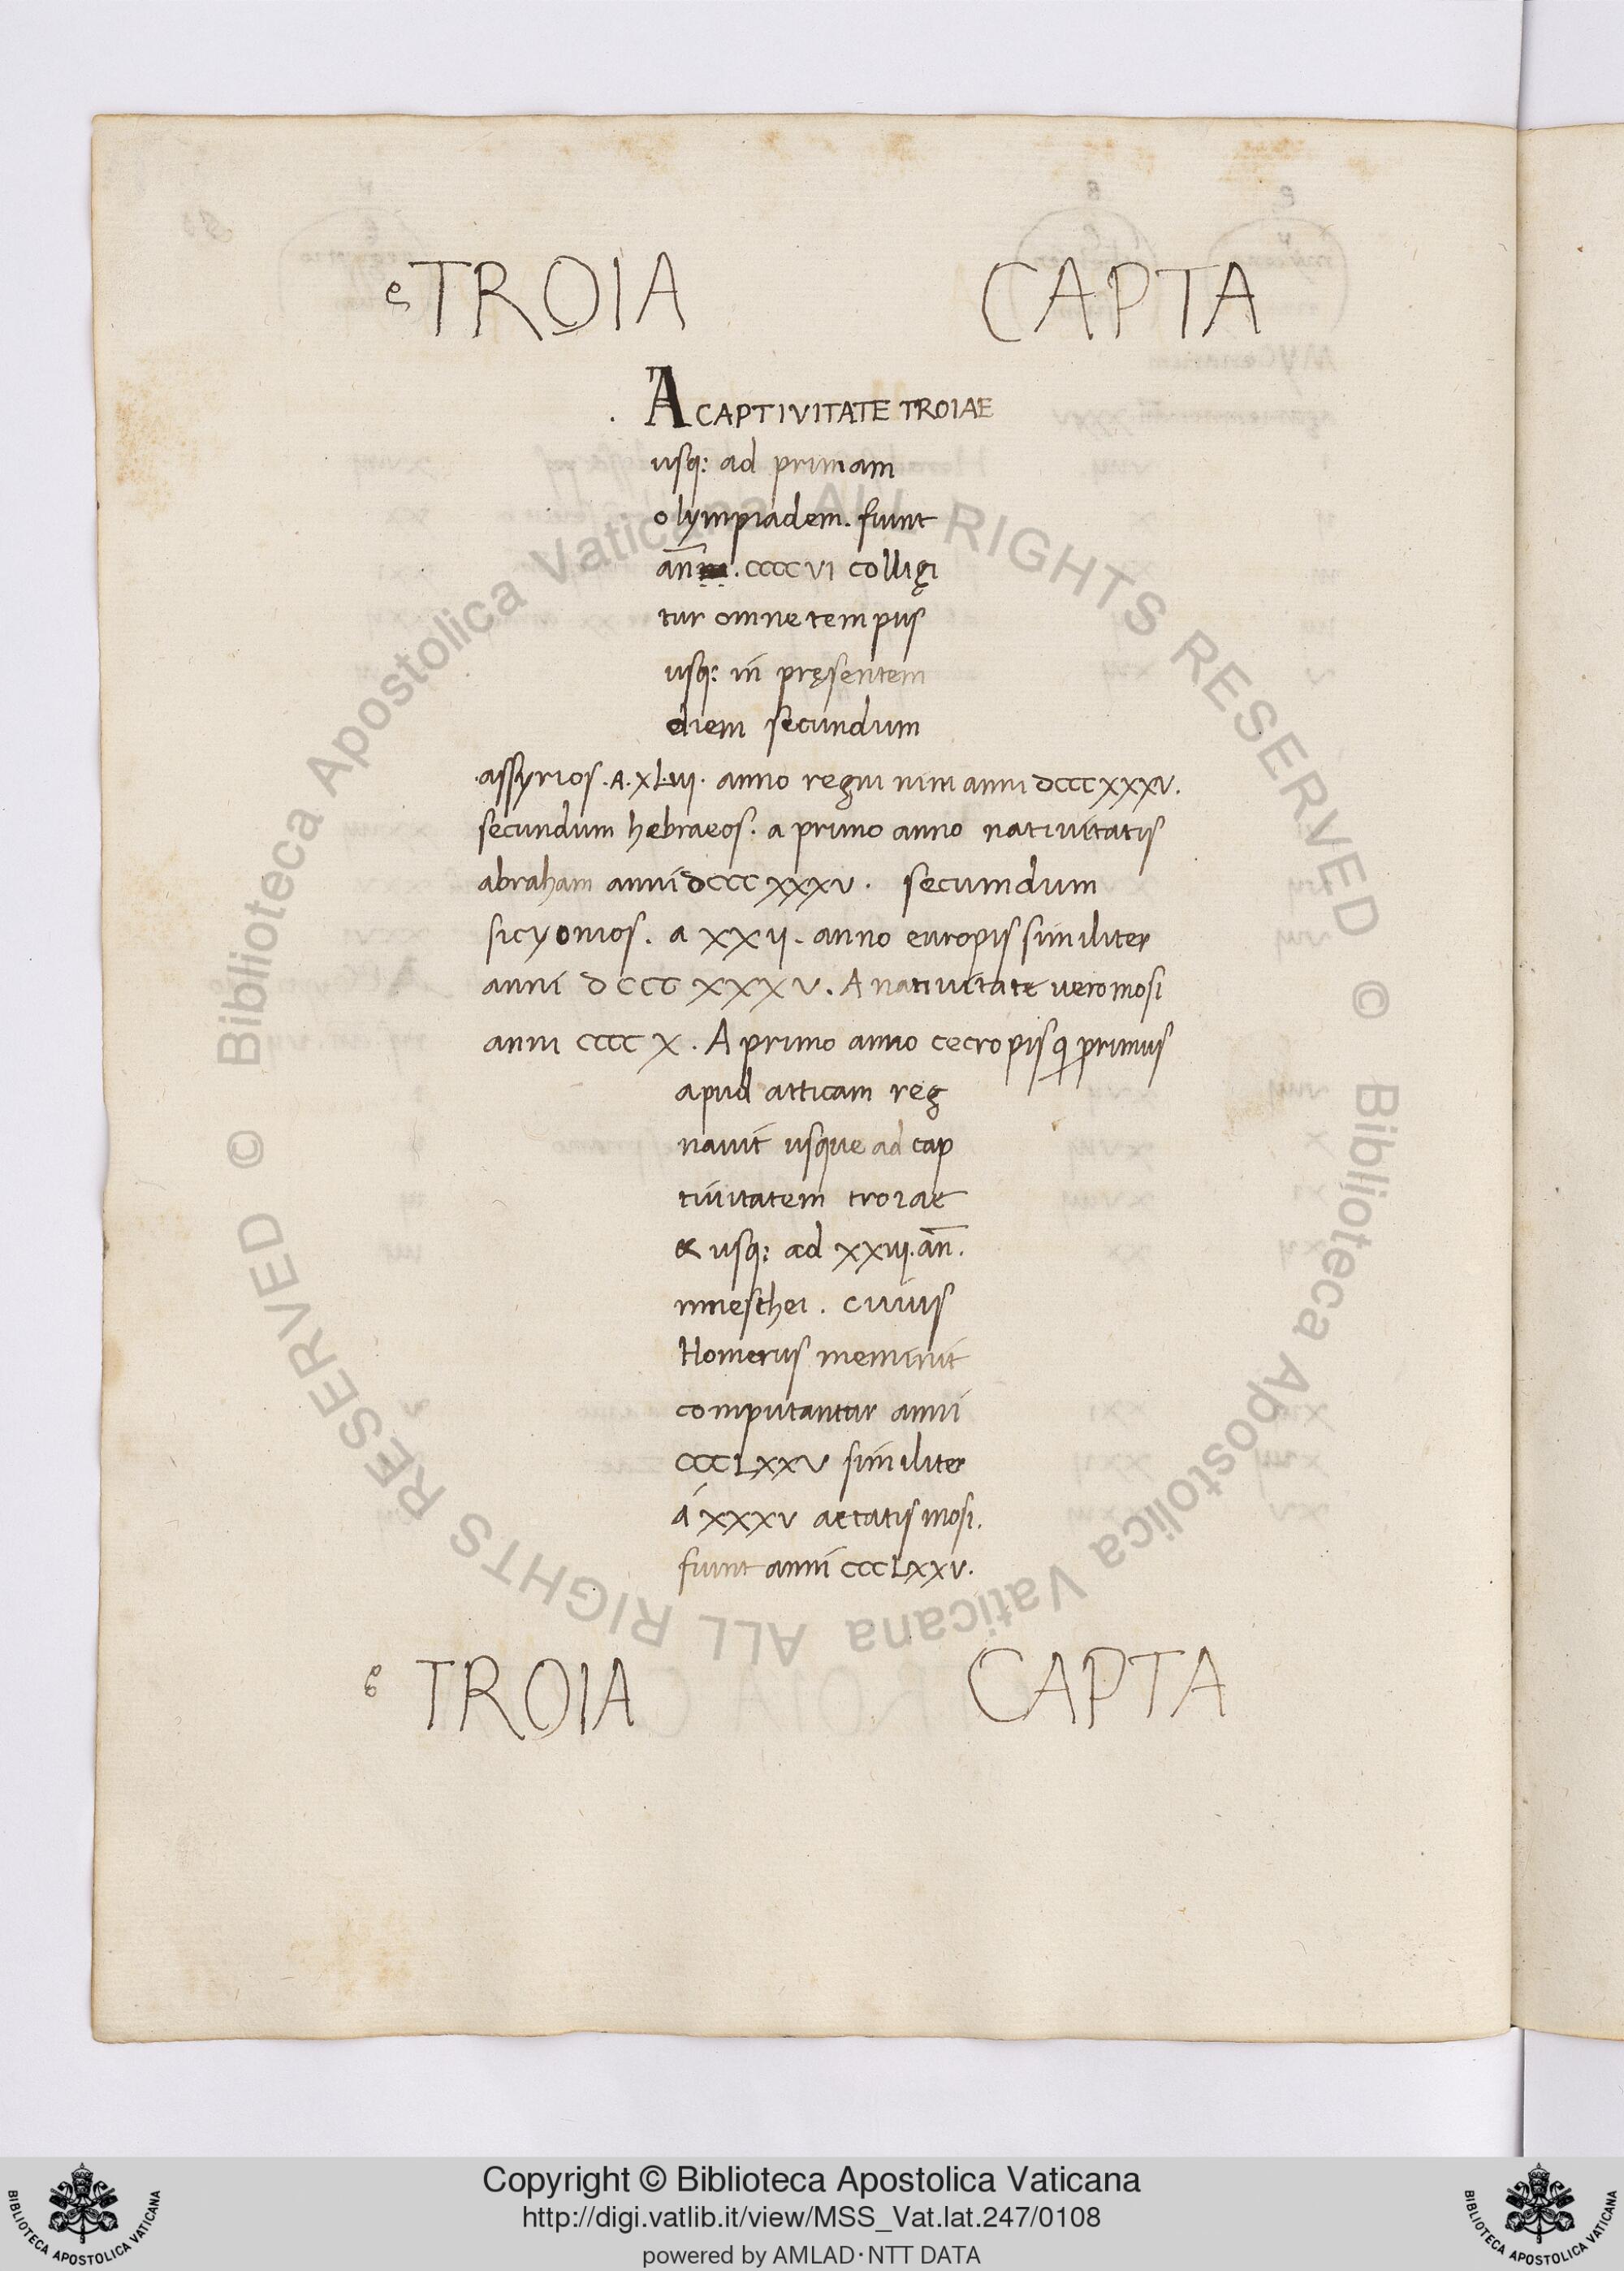 e TROIA CAPTA
A CAPTIVITATE TROIAE
usq: ad primam
olympiadem. fiunt
ann̄. CCCCVI collięi
tur omne tempus
usq: in pręsentem
diem secundum
.assyrios. A. XLIII. anno regni nini anni DCCCXXXV.
secundum hebraeos. a primo anno nativitatis
abraham anni DCCC XXXV. secundum
sicyonios. a XXII. anno europis similiter
anni DCCC XXXV. A nativitate vero mosi
anni CCCC X. A primo anno cecropis q primus
apud atticam reg
navit usque ad cap
tivitatem troiae
& usq: ad XXIII. an̄.
mnesthei. cuius
Homerus meminit
computantur anni
CCCLXXV similiter
á XXXV aetatis mosi.
fiunt anni CCCLXXV.
e TROIA CAPTA
© Biblioteca Apostolica Vaticana ALL RIGHTS RESERVED © Biblioteca Apostolica Vaticana ALL RIGHTS RESERVED
Copyright © Biblioteca Apostolica Vaticana
http://digi.vatlib.it/view/MSS_Vat.lat.247/0108
powered by AMLAD·NTT DATA
BIBLIOTECA APOSTOLICA VATICANA
BIBLIOTECA APOSTOLICA VATICANA